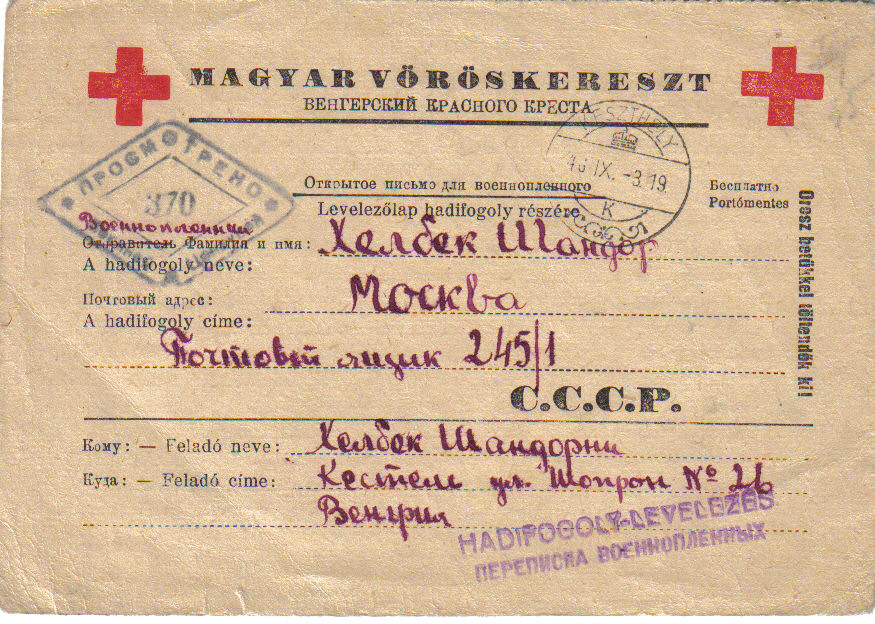 MAGYAR VÖRÖSKERESZT
ВЕНГЕРСКИЙ КРАСНОГО КРЕСТА
KESZTHELY
ПРОСМОТРЕНО
370
IX. -3. 19
K
Открытое письмо для военнопленного
Levelezőlap hadifogoly részére
Бесплатно
Portómentes
Orosz betükkel töltendők ki!
Военнопленный
Отравитель Фамилия и имя: Хелбек Шандор
A hadifogoly neve:
Почтовый адрес: Москва
A hadifogoly címe:
Почтовый ящик 245/1
С.С.С.Р.
Кому: — Feladó neve: Хелбек Шандорни
Куда: — Feladó címe: Кестели ул. Шопрон № 26
Венгрия
HADIFOGOLY-LEVELEZÉS
ПЕРЕПИСКА ВОЕННОПЛЕННЫХ